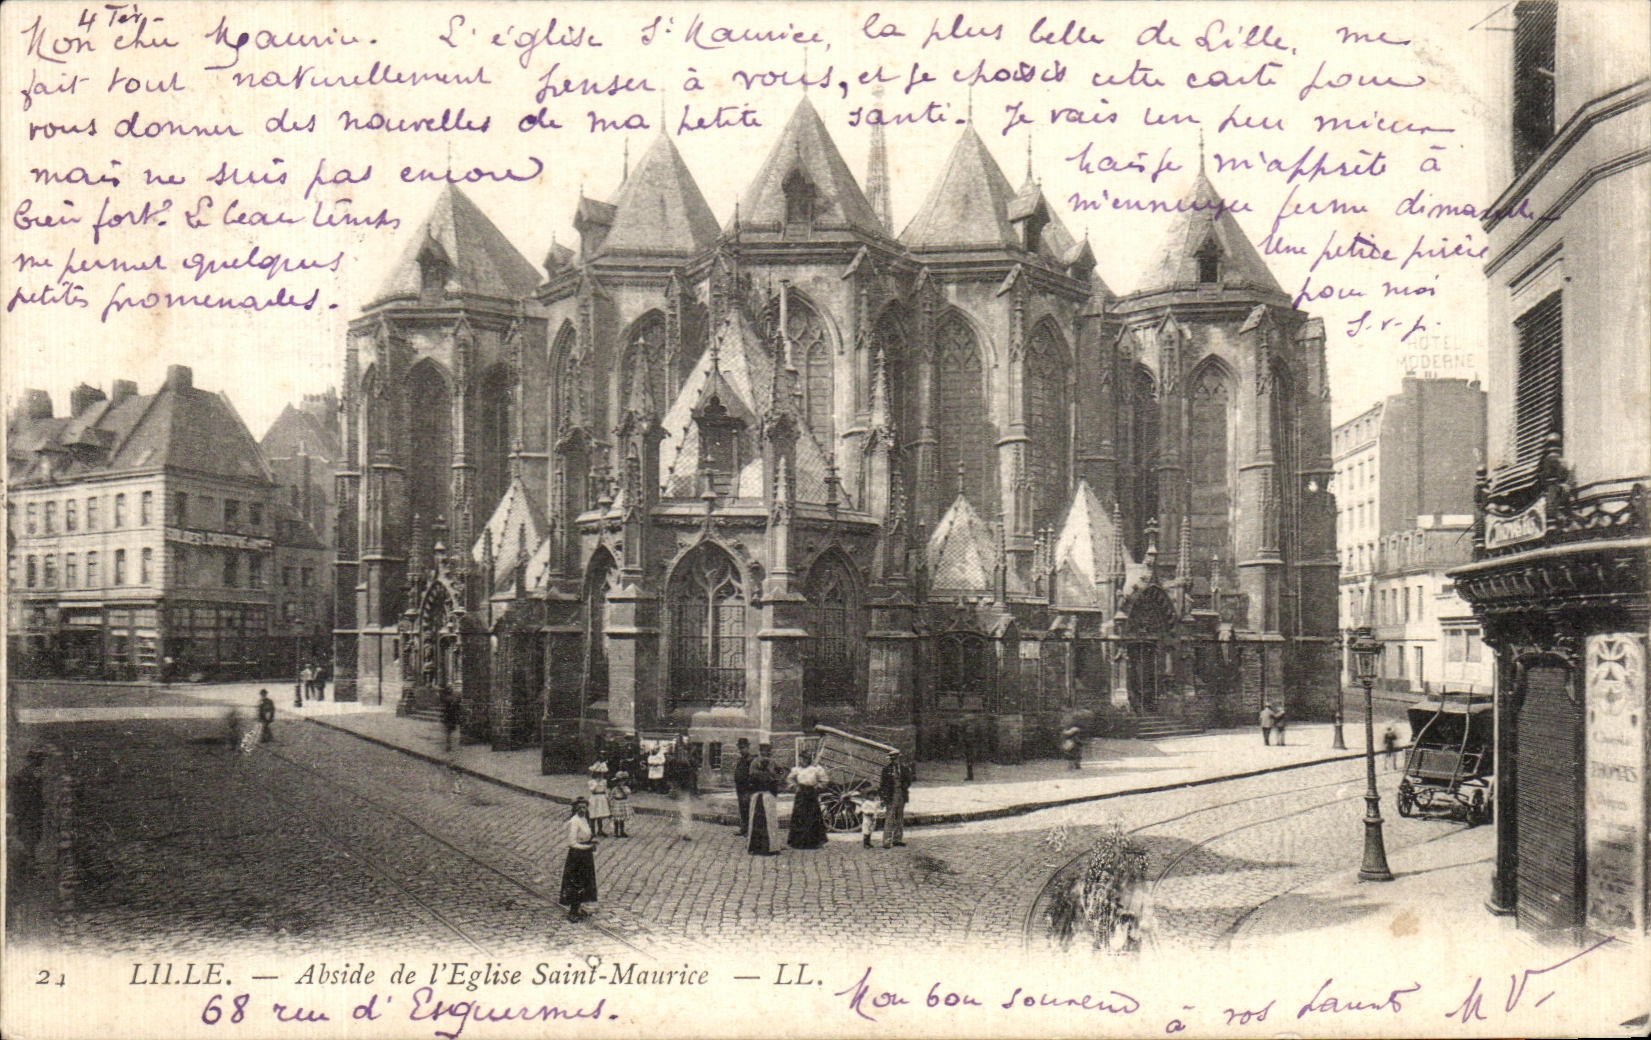 4 Fév.
Mon cher Maurice. L'église St Maurice, la plus belle de Lille, me
fait tout naturellement penser à vous, et je choisis cette carte pour
vous donner des nouvelles de ma petite santé. Je vais un peu mieux
mais ne suis pas encore
bien fort. Le beau temps
me permet quelques
petites promenades.
mais je m'apprête à
m'ennuyer ferme dimanche
Une petite prière
pour moi
S.v.p.
HÔTEL
MODERNE
THOMAS
24 LILLE. — Abside de l'Eglise Saint-Maurice — LL.
68 rue d'Esquermes.
Mon bon souvenir
à vos parents M V.